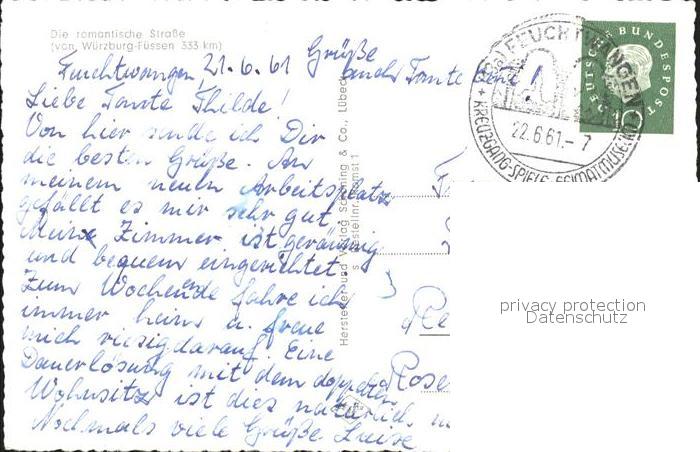 Die romantische Straße
(von Würzburg-Füssen 333 km)
Grüße
Feuchtwangen 21.6.61
auch Tante
Liebe Tante Thilde!
Von hier sende ich Dir
die besten Grüße. An
meinem neuen Arbeitsplatz
gefällt es mir sehr gut.
Mein Zimmer ist geräumig
und bequem eingerichtet.
Zum Wochenende fahre ich
immer heim u. freue
mich riesig darauf. Eine
Dauerlösung mit dem doppelten
Wohnsitz ist dies natürlich
Nochmals viele Grüße Luise
Hersteller und Verlag Schöning & Co., Lübeck
DEUTSCHE BUNDESPOST
10
FEUCHTWANGEN
22.6.61-7
KREUZGANG-SPIELE HEIMATMUSEUM
Rose
privacy protection
Datenschutz